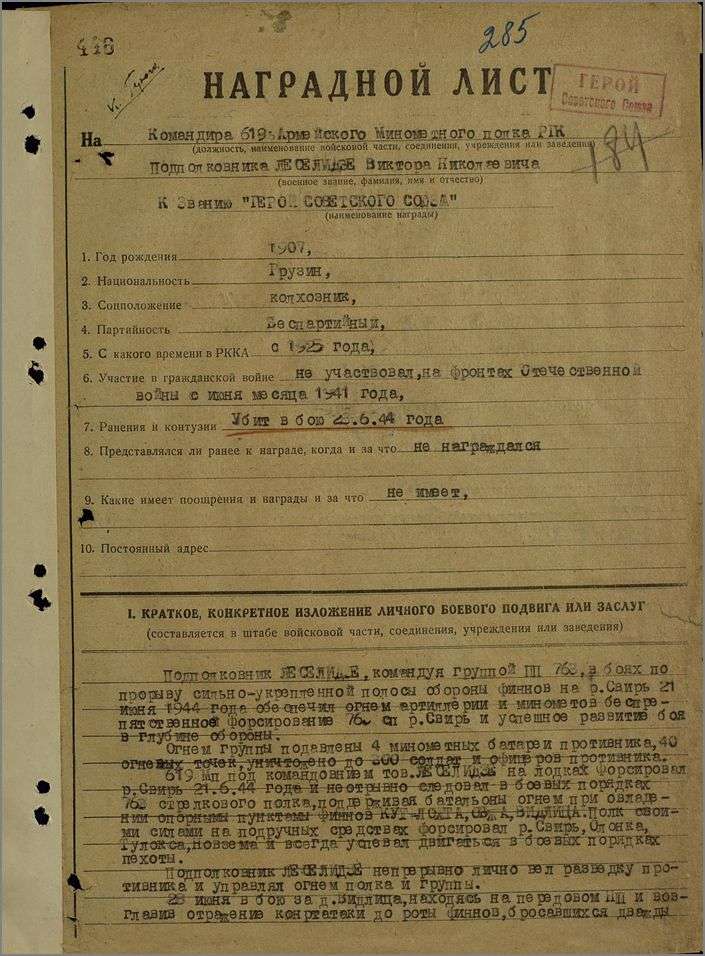 446
285
НАГРАДНОЙ ЛИСТ
ГЕРОЙ
Советского Союза
184
На Командира 619 Армейского Минометного полка РГК
(должность, наименование войсковой части, соединения, учреждения или заведения)
Подполковника ЛЕСЕЛИДЗЕ Виктора Николаевича
(военное звание, фамилия, имя и отчество)
К Званию "ГЕРОЙ СОВЕТСКОГО СОЮЗА"
(наименование награды)
1. Год рождения 1907,
2. Национальность Грузин,
3. Соцположение колхозник,
4. Партийность Беспартийный,
5. С какого времени в РККА с 1925 года,
6. Участие в гражданской войне не участвовал, на фронтах Отечественной
войны с июня месяца 1941 года,
7. Ранения и контузии Убит в бою 28.6.44 года
8. Представлялся ли ранее к награде, когда и за что не награждался
9. Какие имеет поощрения и награды и за что не имеет,
10. Постоянный адрес
I. КРАТКОЕ, КОНКРЕТНОЕ ИЗЛОЖЕНИЕ ЛИЧНОГО БОЕВОГО ПОДВИГА ИЛИ ЗАСЛУГ
(составляется в штабе войсковой части, соединения, учреждения или заведения)
Подполковник ЛЕСЕЛИДЗЕ, командуя группой ПП 763, в боях по
прорыву сильно-укрепленной полосы обороны финнов на р.Свирь 21
июня 1944 года обеспечил огнем артиллерии и минометов беспре-
пятственное форсирование 763 сп р.Свирь и успешное развитие боя
в глубине обороны.
Огнем группы подавлены 4 минометных батареи противника, 40
огневых точек, уничтожено до 300 солдат и офицеров противника.
619 Мп под командовнием тов.ЛЕСЕЛИДЗЕ на лодках форсировал
р.Свирь 21.6.44 года и неотрывно следовал в боевых порядках
763 стрелкового полка, поддерживая батальоны огнем при овладе-
нии опорными пунктами финнов ВИДЛИЦА. Полк свои-
ми силами на подручных средствах форсировал р.Свирь, Олонка,
Тулокса, Новзема и всегда успевал двигаться в боевых порядках
пехоты.
Подполковник ЛЕСЕЛИДЗЕ непрерывно лично вел разведку про-
тивника и управлял огнем полка и группы.
28 июня в бою за д.Видлица, находясь на передовом ПП и воз-
главив отражение контратаки до роты финнов, бросавшихся дважды